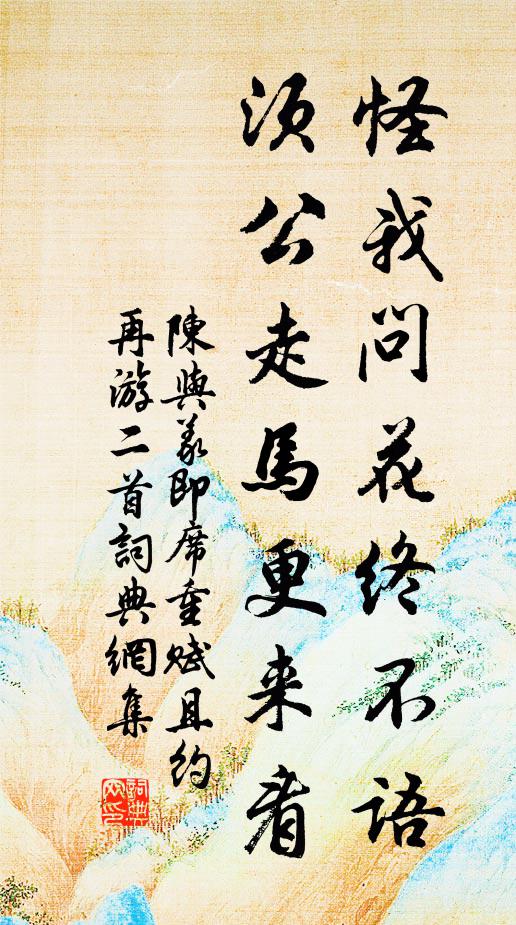 怪我问花终不语
须公走馬更来看
陳與義即席重赋且约
再游二首詞典網集
詞典網印